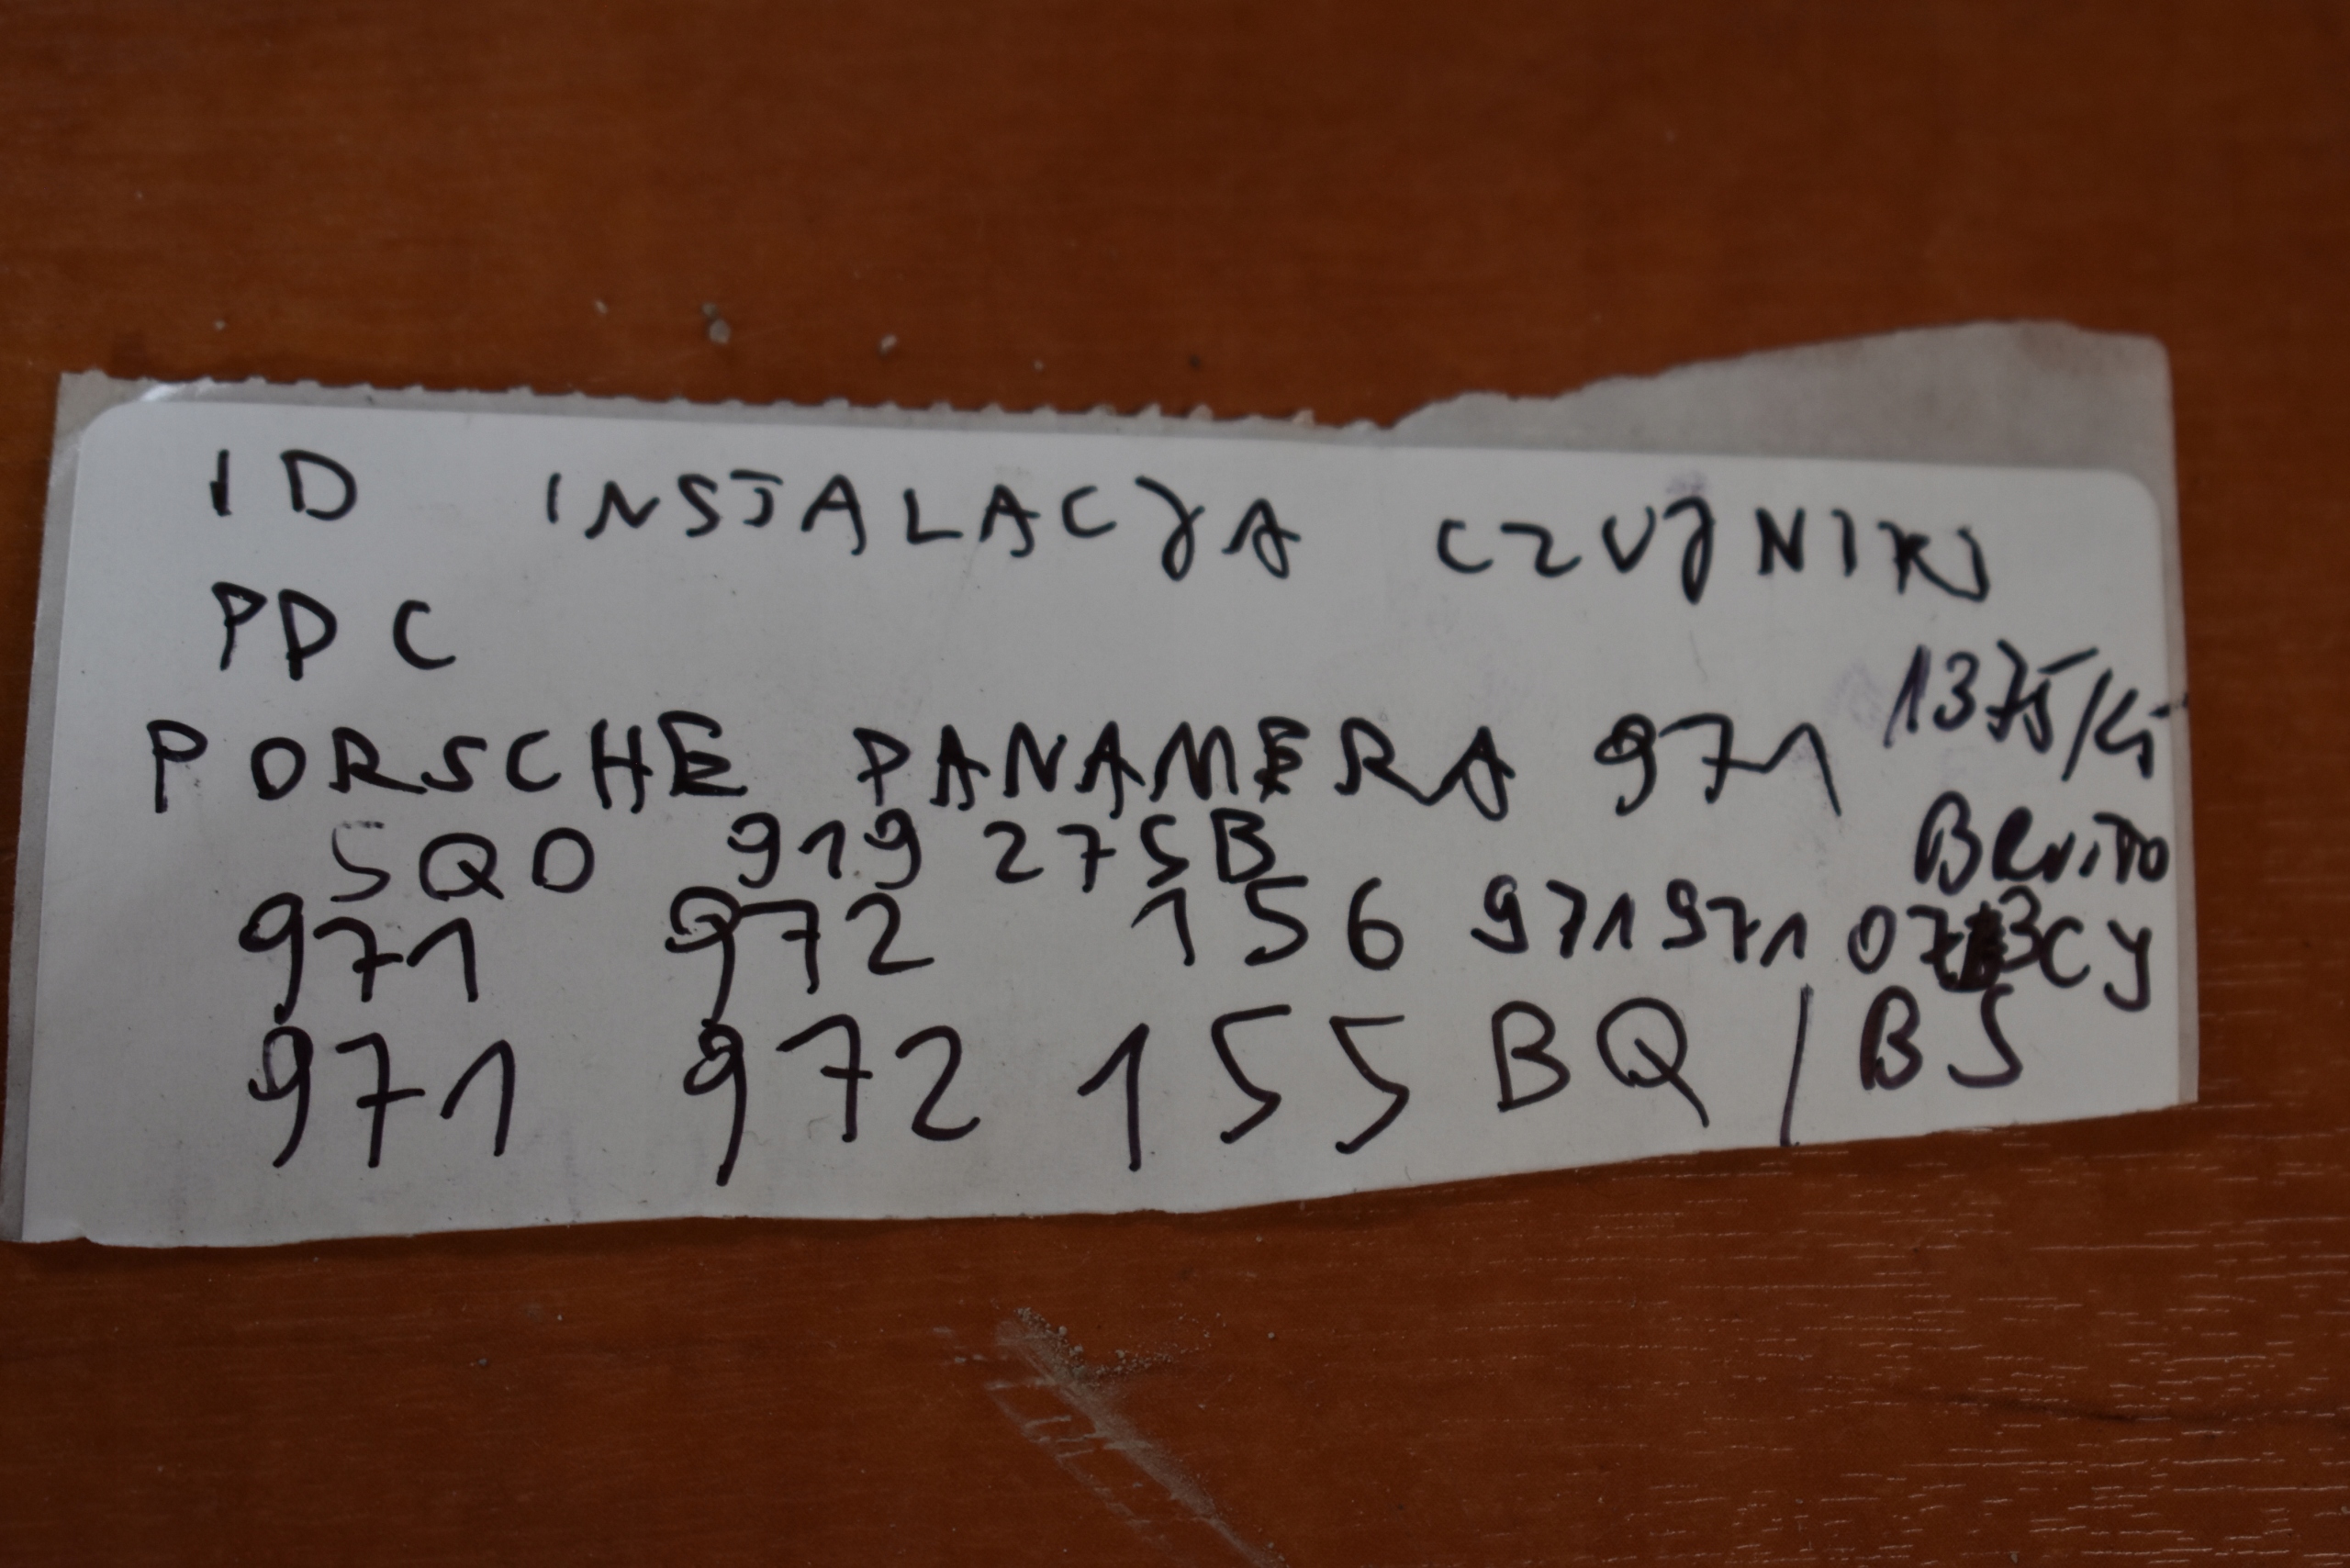 ID INSTALACJA CZUJNIKI
PDC
PORSCHE PANAMERA 971 1375/G
5Q0 919 275B Benito
971 972 156 971971 073CY
971 972 155 BQ / BS